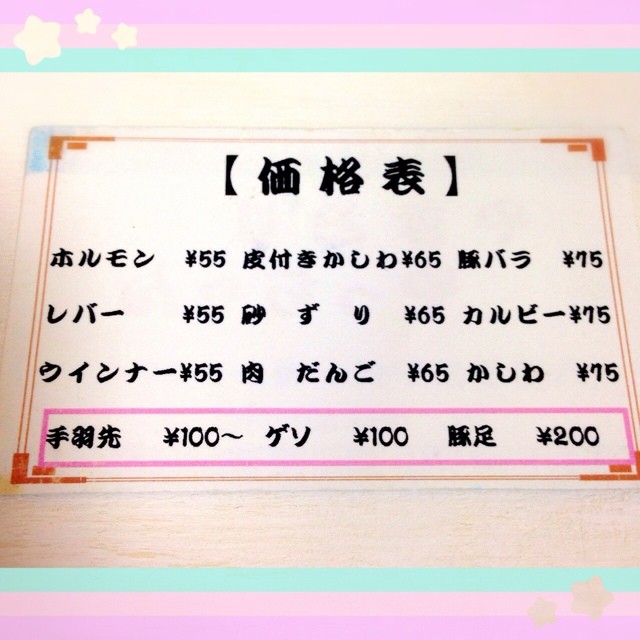 【価格表】
ホルモン ¥55 皮付きかしわ ¥65 豚バラ ¥75
レバー ¥55 砂ずり ¥65 カルビー ¥75
ウインナー ¥55 肉だんご ¥65 かしわ ¥75
手羽先 ¥100〜 ゲソ ¥100 豚足 ¥200